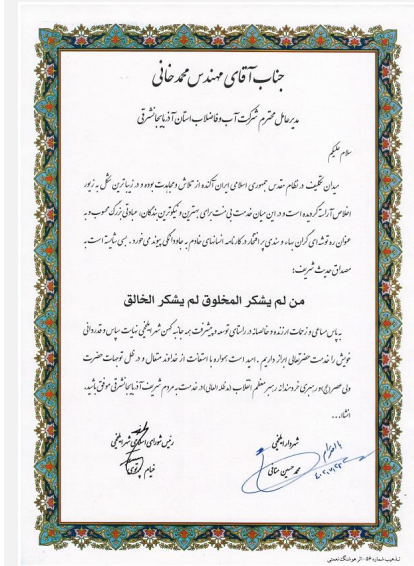 جناب آقای مهندس محمدخانی
مدیرعامل محترم شرکت آب و فاضلاب استان آذربایجانشرقی
سلام علیکم
میدان تکلیف در نظام مقدس جمهوری اسلامی ایران آکنده از تلاش و مجاهدت بوده و در زیباترین شکل به زیور
اخلاص آراسته گردیده است و در این میان خدمت بی منت برای بهترین و نیکوترین بندگان، عبادتی بزرگ محسوب و به
عنوان ره توشه ای گران بهاء و سندی پر افتخار در کارنامه انسانهای خادم به جاودانگی پیوند می خورد. بسی شایسته است به
مصداق حدیث شریف:
من لم یشکر المخلوق لم یشکر الخالق
به پاس مساعی و زحمات ارزنده و خالصانه در راستای توسعه و پیشرفت همه جانبه کهن شهر ایلخچی نهایت سپاس و قدردانی
خویش را خدمت حضرتعالی ابراز داریم. امید است همواره با استعانت از خداوند متعال و در ظل توجهات حضرت
ولی عصر (عج) و رهبری خردمندانه رهبر معظم انقلاب (مدظله العالی) در خدمت به مردم شریف آذربایجانشرقی موفق باشید.
انشاا...
شهردار ایلخچی
رئیس شورای اسلامی شهر ایلخچی
با احترام
محمد حسین
خیام
تذهیب شماره ۵۶- اثر هوشنگ نعمتی